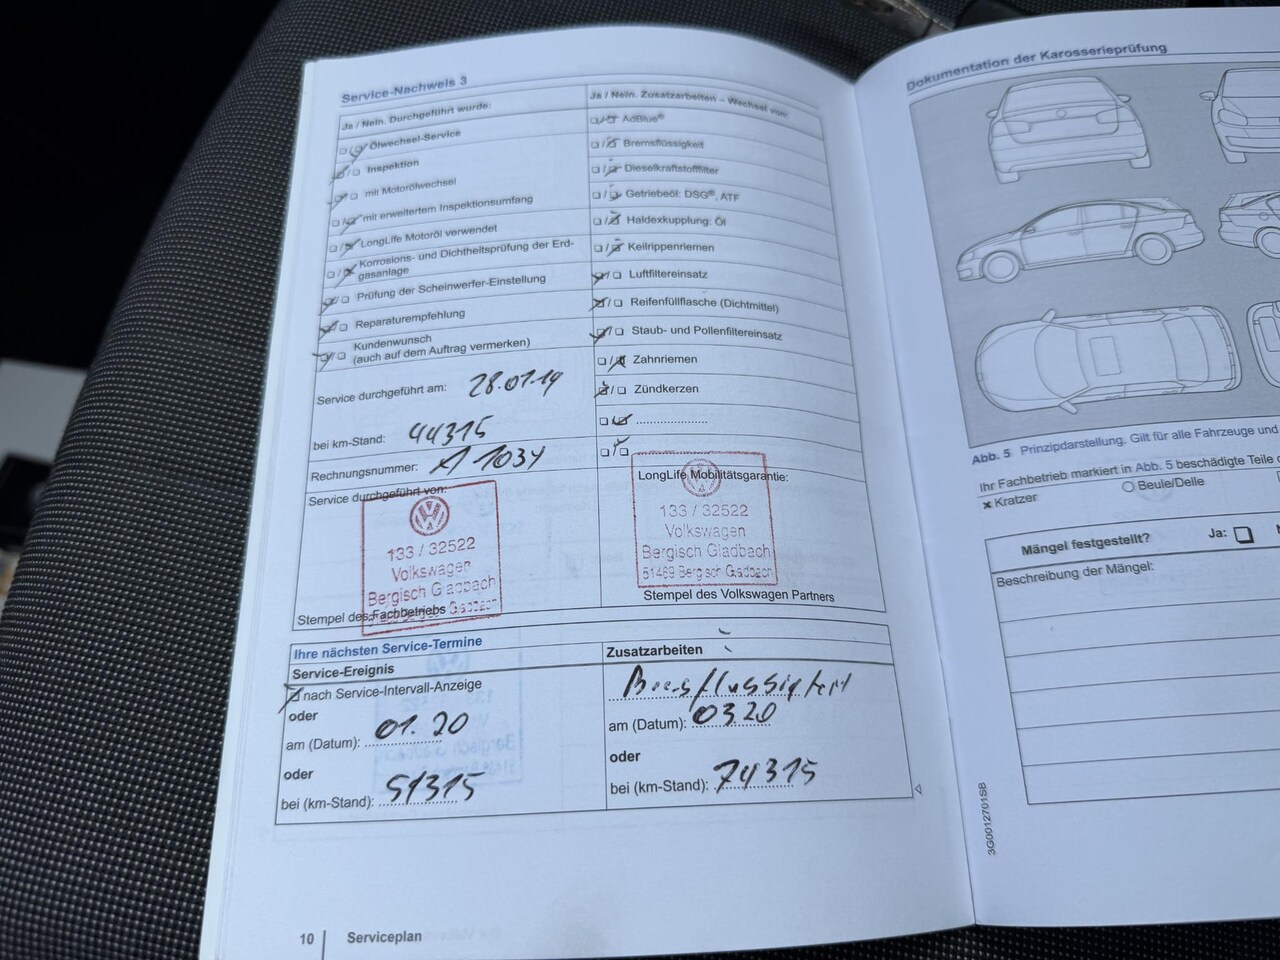 Service-Nachweis 3
Ja / Nein. Durchgeführt wurde:
Ölwechsel-Service
Inspektion
mit Motorölwechsel
mit erweitertem Inspektionsumfang
LongLife Motoröl verwendet
Korrosions- und Dichtheitsprüfung der Erd-
gasanlage
Prüfung der Scheinwerfer-Einstellung
Reparaturempfehlung
Kundenwunsch
(auch auf dem Auftrag vermerken)
Service durchgeführt am: 28.01.19
bei km-Stand: 44315
Rechnungsnummer: 1034
Service durchgeführt von:
133 / 32522
Volkswagen
Bergisch Gladbach
Stempel des Fachbetriebs
Ja / Nein. Zusatzarbeiten – Wechsel von:
AdBlue®
Bremsflüssigkeit
Dieselkraftstofffilter
Getriebeöl: DSG®, ATF
Haldexkupplung: Öl
Keilrippenriemen
Luftfiltereinsatz
Reifenfüllflasche (Dichtmittel)
Staub- und Pollenfiltereinsatz
Zahnriemen
Zündkerzen
LongLife Mobilitätsgarantie:
133 / 32522
Volkswagen
Bergisch Gladbach
51469 Bergisch Gladbach
Stempel des Volkswagen Partners
Ihre nächsten Service-Termine
Service-Ereignis
nach Service-Intervall-Anzeige
oder
am (Datum): 01.20
oder
bei (km-Stand): 51315
Zusatzarbeiten
Bremsflüssigkeit
am (Datum): 03.20
oder
bei (km-Stand): 74315
10 Serviceplan
Dokumentation der Karosserieprüfung
Abb. 5 Prinzipdarstellung. Gilt für alle Fahrzeuge und
Ihr Fachbetrieb markiert in Abb. 5 beschädigte Teile
Kratzer
Beule/Delle
Mängel festgestellt? Ja:
Beschreibung der Mängel:
3G0012701SB